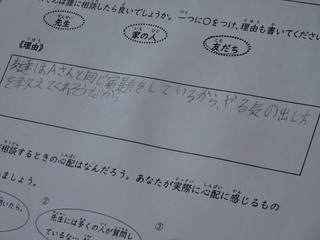 に相談したら良いでしょうか。一つに○をつけ、理由も書いてください
先生
家の人
友だち
《理由》
友達はAさんと同じ宿題をしているから、やる気の出し方
を教えてくれそうだから
相談するときの心配はなんだろう。あなたが実際に心配に感じるもの
ましょう。
②
③
先生には多くの人が質問し
ている